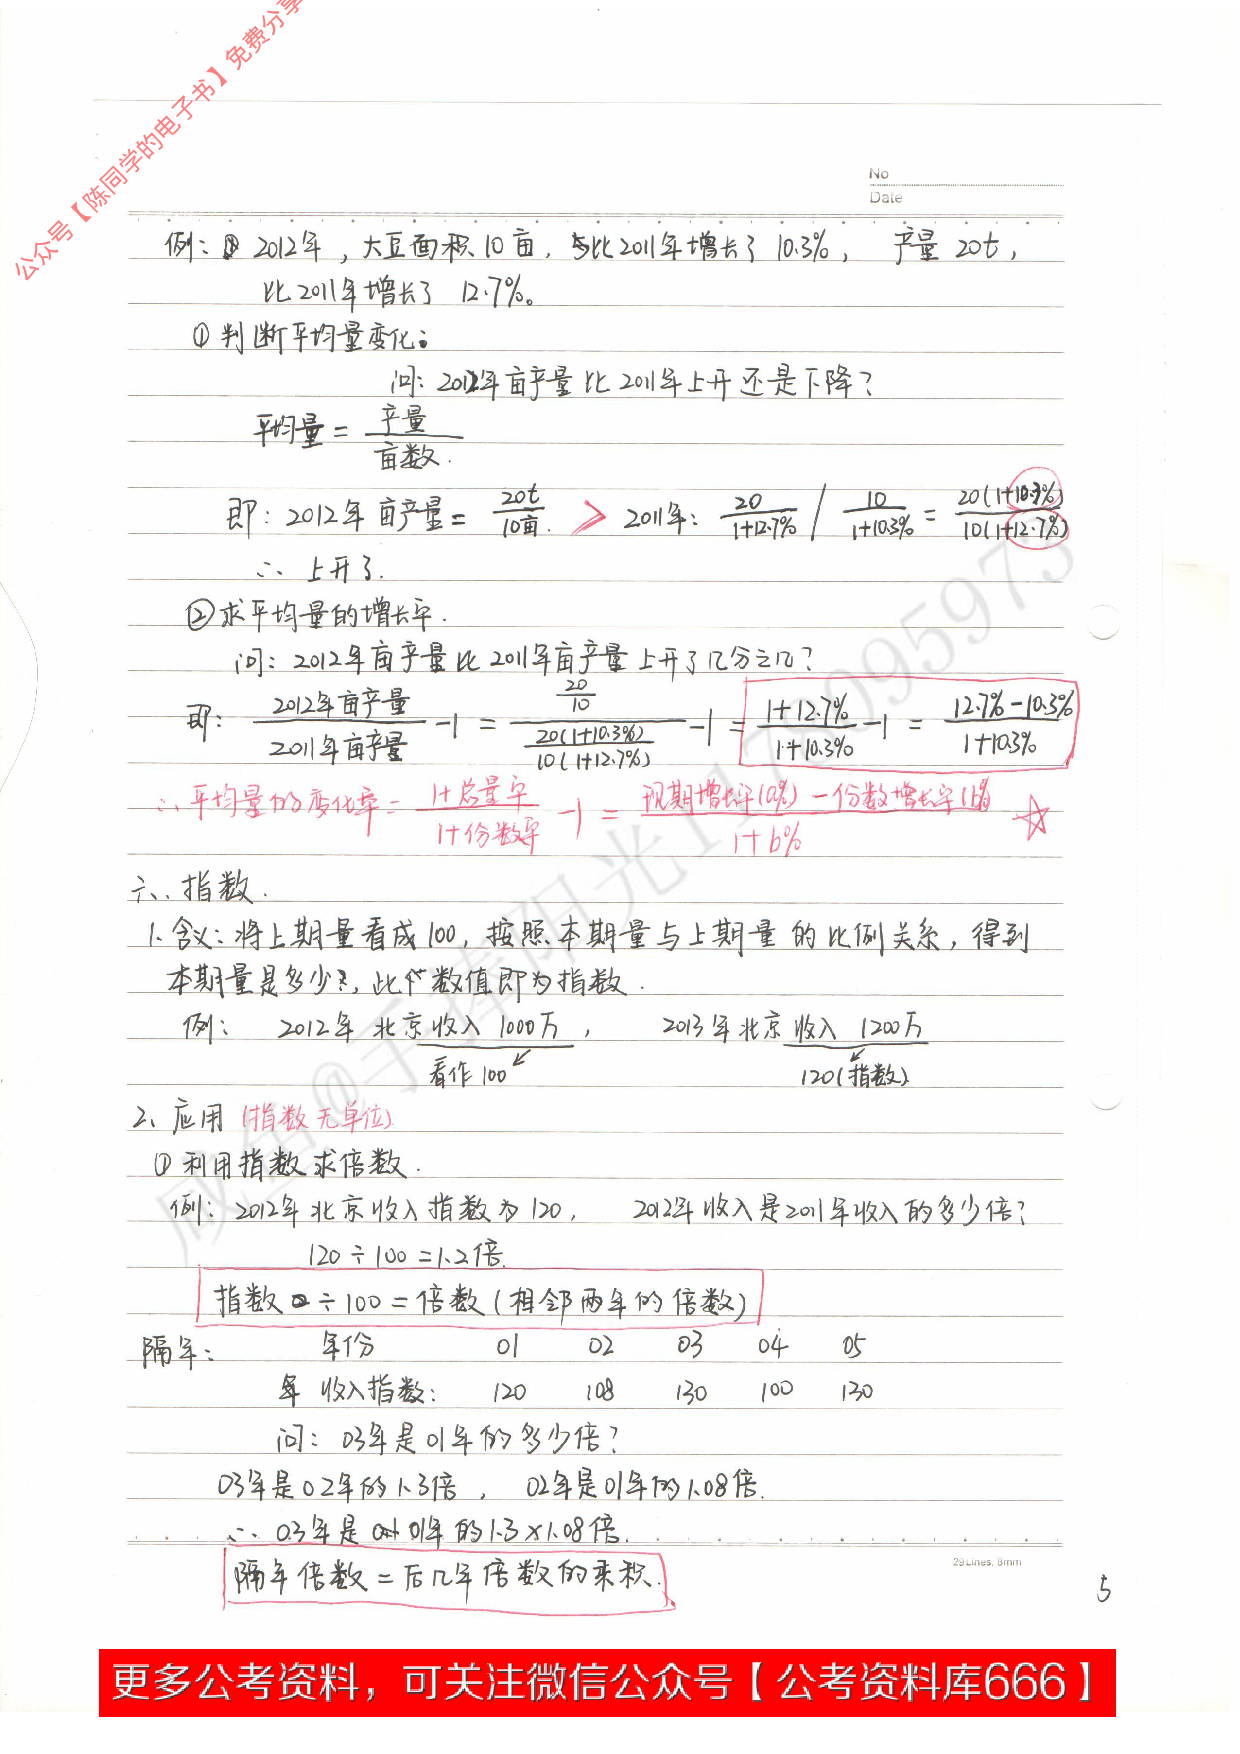 公众号【陈同学的电子书】免费分享
No
Date
例：① 2012年，大豆面积10亩，与比2011年增长了10.3%，产量20t，
比2011年增长了 12.7%。
①判断平均量变化：
问：2012年亩产量比2011年上升还是下降？
平均量 = 产量/亩数.
即：2012年亩产量 = 20t/10亩. > 2011年：20/(1+12.7%) / 10/(1+10.3%) = 20(1+10.3%)/10(1+12.7%)
∴ 上升了.
②求平均量的增长率.
问：2012年亩产量比2011年亩产量上升了几分之几？
即：2012年亩产量/2011年亩产量 -1 = (20/10)/(20(1+10.3%)/10(1+12.7%)) -1 = (1+12.7%)/(1+10.3%) -1 = (12.7%-10.3%)/(1+10.3%)
∴平均量的变化率 = (1+总量率)/(1+份数率) -1 = (现期增长率(a%) - 份数增长率(b%))/(1+b%) ☆
六、指数.
1、含义：将上期量看成100，按照本期量与上期量的比例关系，得到
本期量是多少？，此个数值即为指数.
例： 2012年北京收入1000万， 2013年北京收入 1200万
看作100 120(指数)
2、应用(指数无单位)
①利用指数求倍数.
例：2012年北京收入指数为120， 2012年收入是2011年收入的多少倍？
120÷100=1.2倍.
指数÷100=倍数(相邻两年的倍数)
隔年： 年份 01 02 03 04 05
年 收入指数： 120 108 130 100 130
问：03年是01年的多少倍？
03年是02年的1.3倍， 02年是01年的1.08倍.
∴ 03年是01年的1.3×1.08倍.
隔年倍数=后几年倍数的乘积.
29Lines, 8mm
5
咸鱼@手捧阳光1178095973
更多公考资料，可关注微信公众号【公考资料库666】